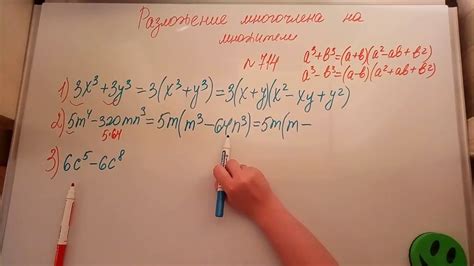 Разложение многочлена на
множители
№ 714
a³+b³=(a+b)(a²-ab+b²)
a³-b³=(a-b)(a²+ab+b²)
1) 3x³+3y³=3(x³+y³)=3(x+y)(x²-xy+y²)
2) 5m⁴-320mn³=5m(m³-64n³)=5m(m-
5·64
3) 6c⁵-6c⁸